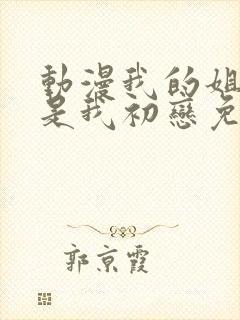 動漫我的姐
是我初戀免
郭京霞